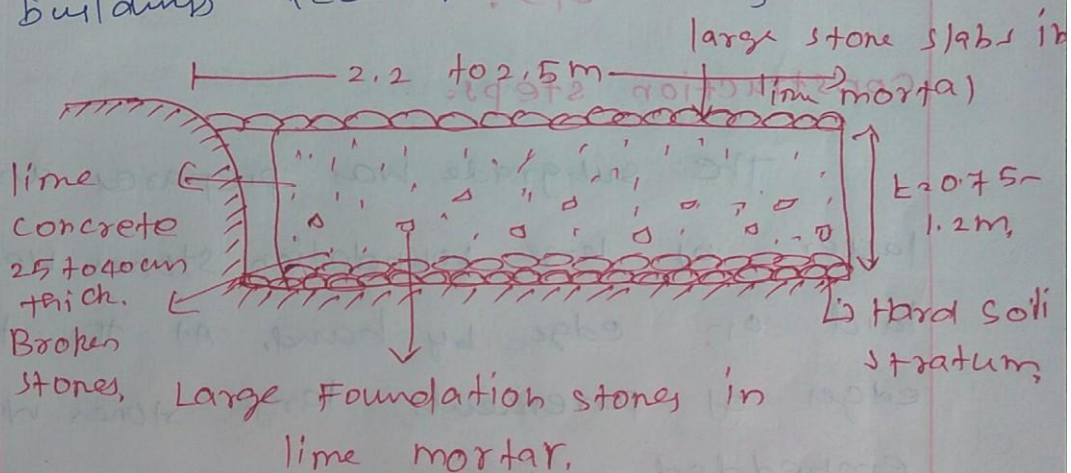 buildings
large stone slabs in
lime mortal
2.2 to 2.5m
lime
concrete
25 to 40 cm
thick.
Broken
stones,
t = 0.75 -
1.2m,
Hard soli
stratum,
Large Foundation stones in
lime mortar.